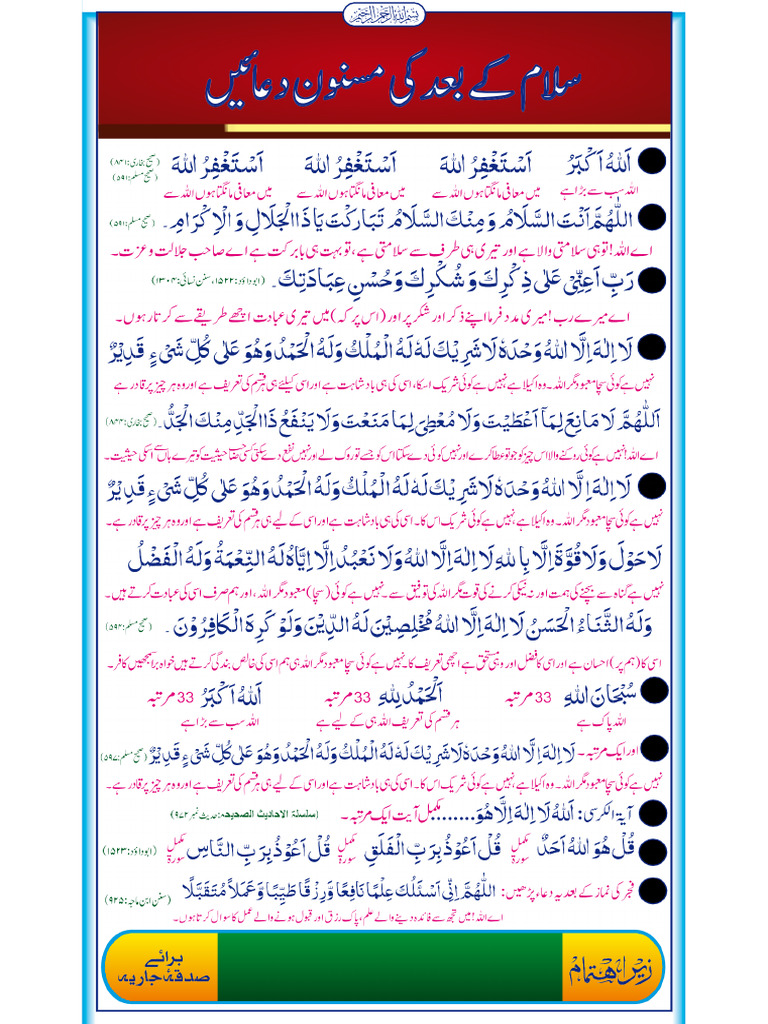 بسم اللہ الرحمن الرحیم
سلام کے بعد کی مسنون دعائیں
اَللهُ اَكْبَرُ اَسْتَغْفِرُ اللهَ اَسْتَغْفِرُ اللهَ اَسْتَغْفِرُ اللهَ (صحیح بخاری:۸۴۱) (صحیح مسلم:۵۹۱)
اللہ سب سے بڑا ہے میں معافی مانگتا ہوں اللہ سے میں معافی مانگتا ہوں اللہ سے میں معافی مانگتا ہوں اللہ سے
اَللّٰهُمَّ اَنْتَ السَّلَامُ وَمِنْكَ السَّلَامُ تَبَارَكْتَ يَا ذَا الْجَلَالِ وَالْاِكْرَامِ ۔ (صحیح مسلم:۵۹۱)
اے اللہ! تو ہی سلامتی والا ہے اور تیری ہی طرف سے سلامتی ہے، تو بہت ہی بابرکت ہے اے صاحب جلالت و عزت۔
رَبِّ اَعِنِّىْ عَلٰى ذِكْرِكَ وَشُكْرِكَ وَحُسْنِ عِبَادَتِكَ۔ (ابوداؤد:۱۵۲۲، سنن نسائی:۱۳۰۴)
اے میرے رب! میری مدد فرما اپنے ذکر اور شکر پر اور (اس پر کہ) میں تیری عبادت اچھے طریقے سے کرتا رہوں۔
لَا اِلٰهَ اِلَّا اللهُ وَحْدَهٗ لَا شَرِيْكَ لَهٗ لَهُ الْمُلْكُ وَلَهُ الْحَمْدُ وَهُوَ عَلٰى كُلِّ شَىْءٍ قَدِيْرٌ
نہیں ہے کوئی سچا معبود مگر اللہ۔ وہ اکیلا ہے نہیں ہے کوئی شریک اسکا، اسی کی ہی بادشاہت ہے اور اسی کیلئے ہی ہر قسم کی تعریف ہے اور وہ ہر چیز پر قادر ہے
اَللّٰهُمَّ لَا مَانِعَ لِمَآ اَعْطَيْتَ وَلَا مُعْطِىَ لِمَا مَنَعْتَ وَلَا يَنْفَعُ ذَا الْجَدِّ مِنْكَ الْجَدُّ۔ (صحیح بخاری:۸۴۴)
اے اللہ! نہیں ہے کوئی روکنے والا اس چیز کو جو تو عطا کرے اور نہیں کوئی دے سکتا اس کو جسے تو روک لے اور نہیں نفع دے سکتی کسی حیثیت کو تیرے ہاں اسکی حیثیت۔
لَا اِلٰهَ اِلَّا اللهُ وَحْدَهٗ لَا شَرِيْكَ لَهٗ لَهُ الْمُلْكُ وَلَهُ الْحَمْدُ وَهُوَ عَلٰى كُلِّ شَىْءٍ قَدِيْرٌ
نہیں ہے کوئی سچا معبود مگر اللہ۔ وہ اکیلا ہے، نہیں ہے کوئی شریک اس کا۔ اسی کی ہی بادشاہت ہے اور اسی کے لیے ہی ہر قسم کی تعریف ہے اور وہ ہر چیز پر قادر ہے۔
لَا حَوْلَ وَلَا قُوَّةَ اِلَّا بِاللهِ لَا اِلٰهَ اِلَّا اللهُ وَلَا نَعْبُدُ اِلَّا اِيَّاهُ لَهُ النِّعْمَةُ وَلَهُ الْفَضْلُ
نہیں ہے گناہ سے بچنے کی ہمت اور نہ نیکی کرنے کی قوت مگر اللہ کی توفیق سے۔ نہیں ہے کوئی (سچا) معبود مگر اللہ، اور ہم صرف اسی کی عبادت کرتے ہیں۔
وَلَهُ الثَّنَاءُ الْحَسَنُ لَا اِلٰهَ اِلَّا اللهُ مُخْلِصِيْنَ لَهُ الدِّيْنَ وَلَوْ كَرِهَ الْكَافِرُوْنَ ۔ (صحیح مسلم:۵۹۴)
اسی کا (ہم پر) احسان ہے اور اسی کا فضل اور وہی مستحق ہے اچھی تعریف کا۔ نہیں ہے کوئی سچا معبود مگر اللہ ہی ہم اسی کی خالص بندگی کرتے ہیں خواہ برا سمجھیں کافر۔
سُبْحَانَ اللهِ 33 مرتبہ اَلْحَمْدُ لِلهِ 33 مرتبہ اَللهُ اَكْبَرُ 33 مرتبہ
اللہ پاک ہے ہر قسم کی تعریف اللہ ہی کے لیے ہے اللہ سب سے بڑا ہے
اور ایک مرتبہ۔ لَا اِلٰهَ اِلَّا اللهُ وَحْدَهٗ لَا شَرِيْكَ لَهٗ لَهُ الْمُلْكُ وَلَهُ الْحَمْدُ وَهُوَ عَلٰى كُلِّ شَىْءٍ قَدِيْرٌ (صحیح مسلم:۵۹۷)
نہیں ہے کوئی سچا معبود مگر اللہ۔ وہ اکیلا ہے، نہیں ہے کوئی شریک اس کا۔ اسی کی ہی بادشاہت ہے اور اسی کے لیے ہی ہر قسم کی تعریف ہے اور وہ ہر چیز پر قادر ہے۔
آیۃ الکرسی: اَللهُ لَا اِلٰهَ اِلَّا هُوَ....... مکمل آیت ایک مرتبہ۔ (سلسلة الاحادیث الصحیحه: حدیث نمبر ۹۷۲)
قُلْ هُوَ اللهُ اَحَدٌ مکمل سورۃ قُلْ اَعُوْذُ بِرَبِّ الْفَلَقِ مکمل سورۃ قُلْ اَعُوْذُ بِرَبِّ النَّاسِ مکمل سورۃ (ابوداؤد:۱۵۲۳)
فجر کی نماز کے بعد یہ دعاء پڑھیں: اَللّٰهُمَّ اِنِّىْ اَسْئَلُكَ عِلْمًا نَافِعًا وَّرِزْقًا طَيِّبًا وَّعَمَلًا مُتَقَبَّلًا (سنن ابن ماجہ:۹۲۵)
اے اللہ! میں تجھ سے فائدہ دینے والے علم، پاک رزق اور قبول ہونے والے عمل کا سوال کرتا ہوں۔
زیر اہتمام
برائے
صدقۂ جاریہ